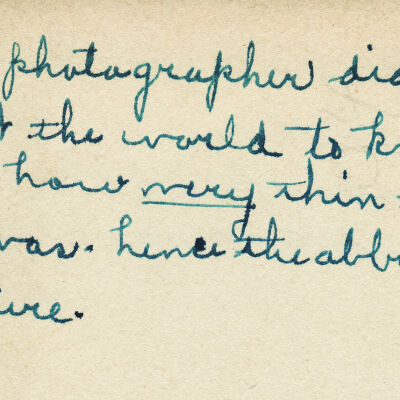 photographer did
the world to k
how very thin
was. hence the abb
ure.